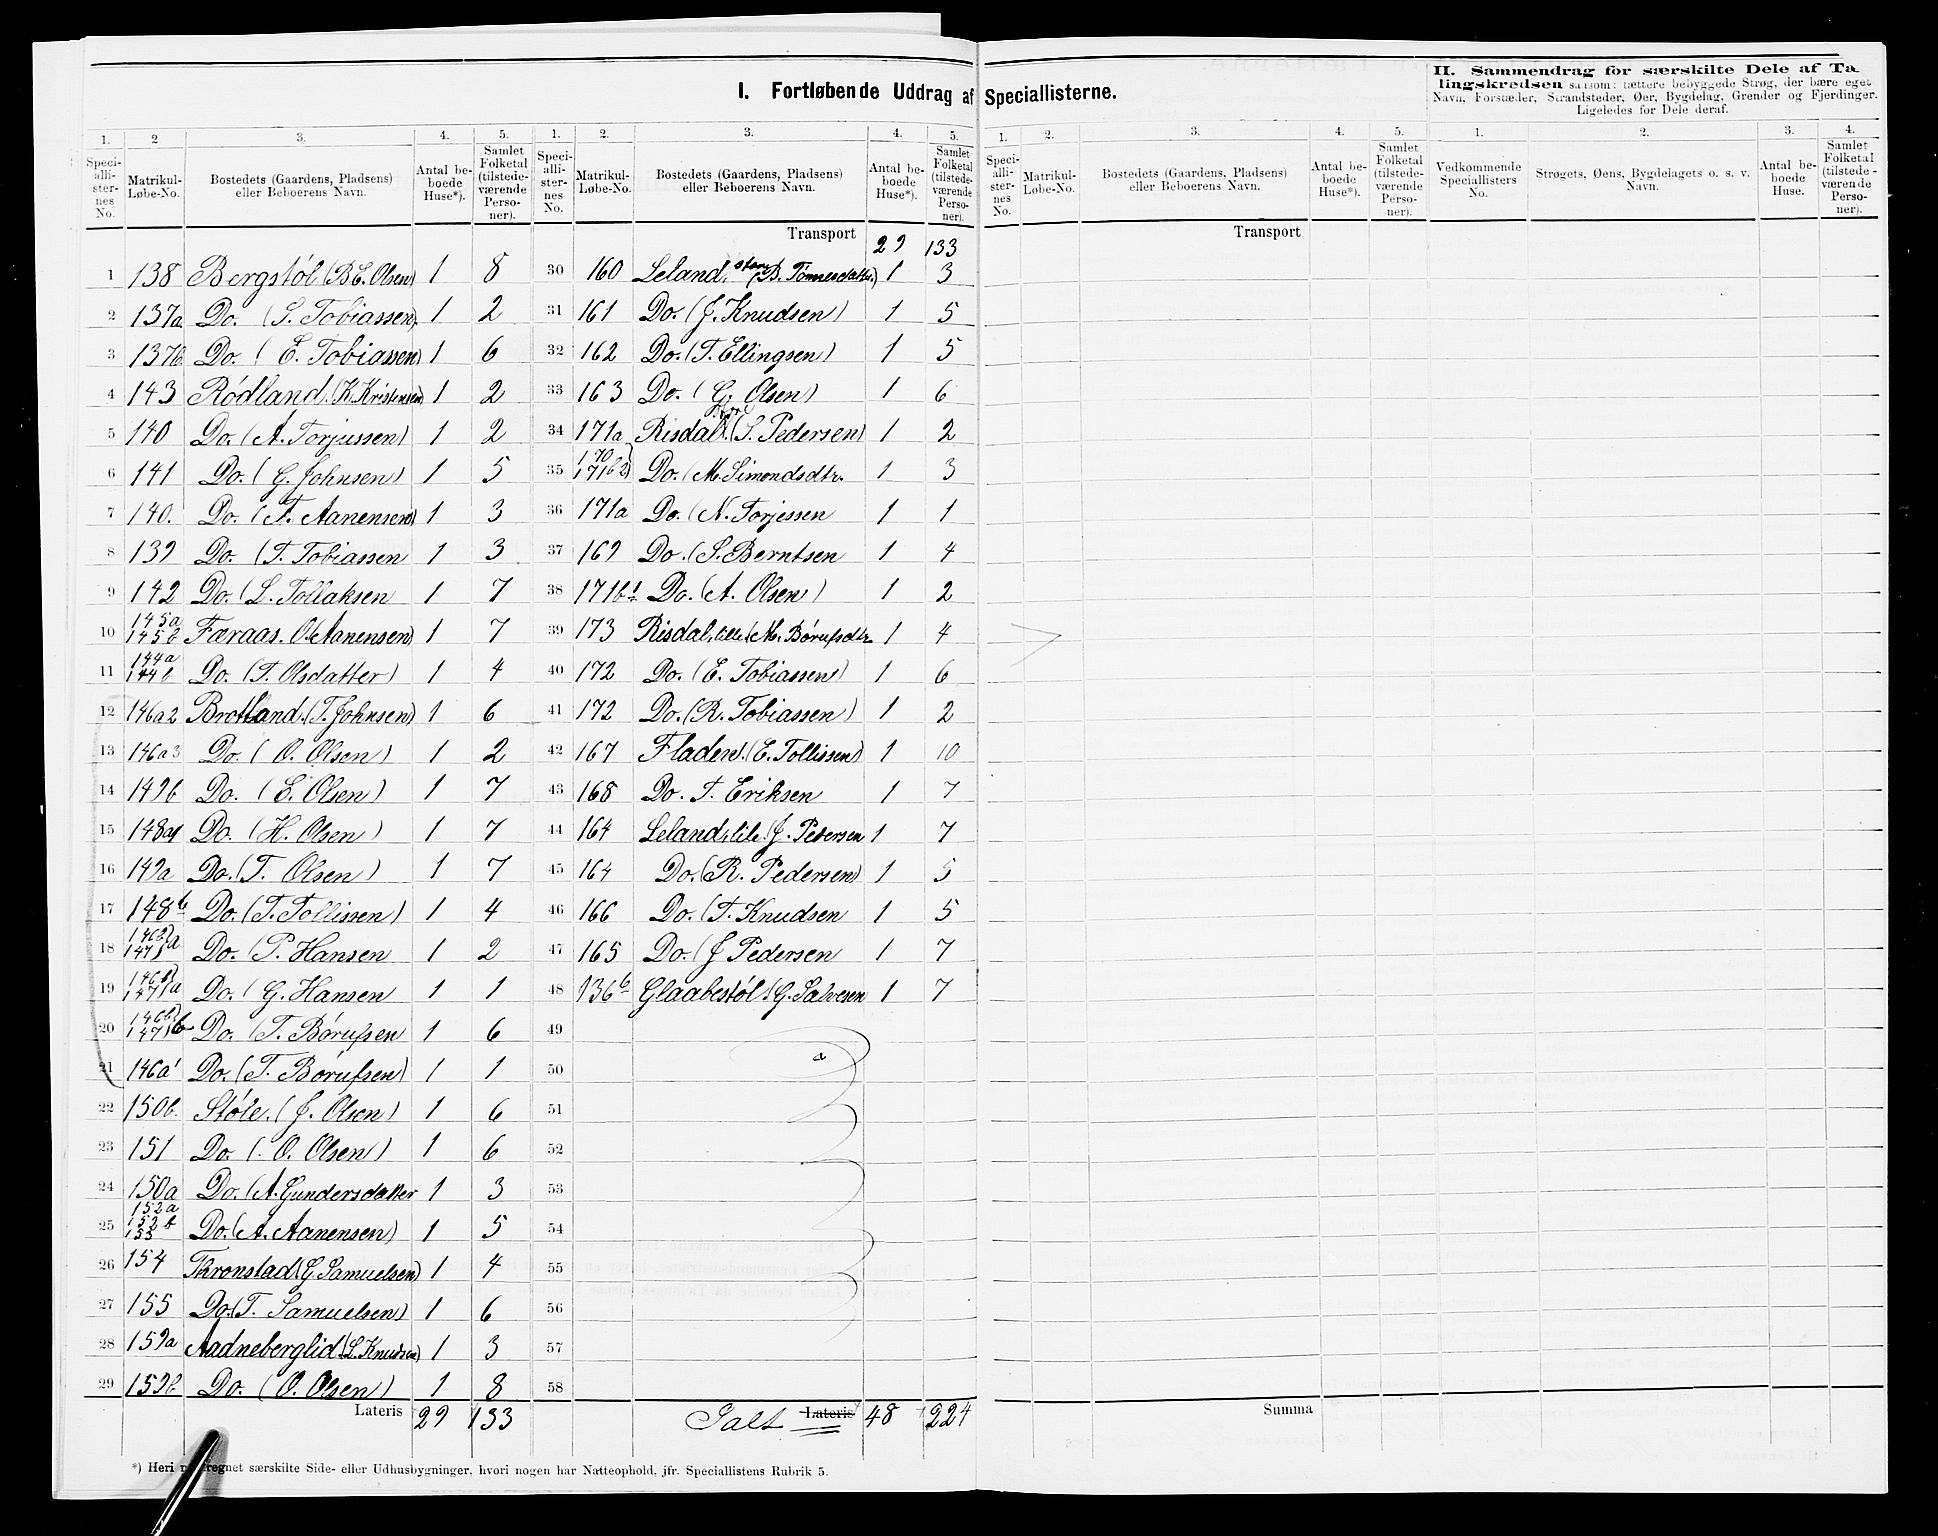 I. Fortløbende Uddrag af Speciallisterne.
II. Sammendrag for særskilte Dele af Tællingskredsen saasom: tættere bebyggede Strøg, der bære eget
Navn, Forstæder, Strandsteder, Øer, Bygdelag, Grender og Fjerdinger.
Ligeledes for Dele deraf.
1. 2 3. 4. 5. 1. 2. 3. 4. 5. 1. 2. 3. 4. 5. 1. 2. 3. 4.
Speciallisternes No. Matrikul-Løbe-No. Bostedets (Gaardens, Pladsens) eller Beboerens Navn. Antal beboede Huse*). Samlet Folketal (tilstedeværende Personer).
Speciallisternes No. Matrikul-Løbe-No. Bostedets (Gaardens, Pladsens) eller Beboerens Navn. Antal beboede Huse*). Samlet Folketal (tilstedeværende Personer).
Speciallisternes No. Matrikul-Løbe-No. Bostedets (Gaardens, Pladsens) eller Beboerens Navn. Antal beboede Huse*). Samlet Folketal (tilstedeværende Personer).
Vedkommende Speciallisters No. Strøgets, Øens, Bygdelagets o. s. v. Navn. Antal beboede Huse. Samlet Folketal (tilstedeværende Personer).
1 138 Bergstøl (B E. Olsen) 1 8
2 137a Do. (S. Tobiassen) 1 2
3 137b Do. (E. Tobiassen) 1 6
4 143 Rødland (K. Kristensen) 1 2
5 140 Do. (A. Torjussen) 1 2
6 141 Do. (G. Johnsen) 1 5
7 140. Do. (T. Aanensen) 1 3
8 139 Do. (T. Tobiassen 1 3
9 142 Do. (L. Tollaksen 1 7
10 145a 145b Færaas. O. Aanensen) 1 7
11 144a 144b Do. (T. Olsdatter) 1 4
12 146a2 Brotland. (T. Johnsen) 1 6
13 146a3 Do. (O. Olsen) 1 2
14 149b Do. (E. Olsen) 1 7
15 148a Do. (H. Olsen) 1 7
16 149a Do. (T. Olsen) 1 7
17 148b Do. (T. Tollissen) 1 4
18 Do. (P. Hansen 1 2
19 Do. (G. Hansen 1 1
20 Do. (T. Børufsen 1 6
21 146a1 Do. (T. Børufsen) 1 1
22 150b. Støle. (J. Olsen) 1 6
23 151 Do. (O. Olsen) 1 6
24 150a Do. (A. Gundersdatter 1 3
25 152a 152b 153 Do. (A. Aanensen) 1 5
26 154 Thronstad (G. Samuelsen) 1 4
27 155 Do. (T. Samuelsen) 1 6
28 159a Aadneberglid (L. Knudsen) 1 3
29 159b Do. (O. Olsen) 1 8
Lateris 29 133
Transport 29 133
30 160 Leland, store (B. Tønnesdatter) 1 3
31 161 Do. (J. Knudsen) 1 5
32 162 Do. (T. Ellingsen) 1 5
33 163 Do. (G. Olsen) 1 6
34 171a Risdal. store (S. Pedersen) 1 2
35 170 171b2 Do. (M. Simondsdtr. 1 3
36 171a Do. (N. Torjessen 1 1
37 169 Do. (S. Berntsen 1 4
38 171b1 Do. (A. Olsen) 1 2
39 173 Risdal, lille (M. Børufsdtr 1 4
40 172 Do. (E. Tobiassen) 1 6
41 172 Do. (R. Tobiassen) 1 2
42 167 Fladen. (E. Tollissen) 1 10
43 168 Do. T. Eriksen 1 7
44 164 Leland, lile (J. Petersen 1 7
45 164 Do. (R. Pedersen) 1 5
46 166 Do. (T. Knudsen 1 5
47 165 Do. (J Pedersen 1 7
48 136b Glaabestøl (G. Salvesen 1 7
49
50
51
52
53
54
55
56
57
58
Ialt Lateris 48 224
Transport
Summa
*) Heri regnet særskilte Side- eller Udhusbygninger, hvori nogen har Natteophold, jfr. Speciallistens Rubrik 5.